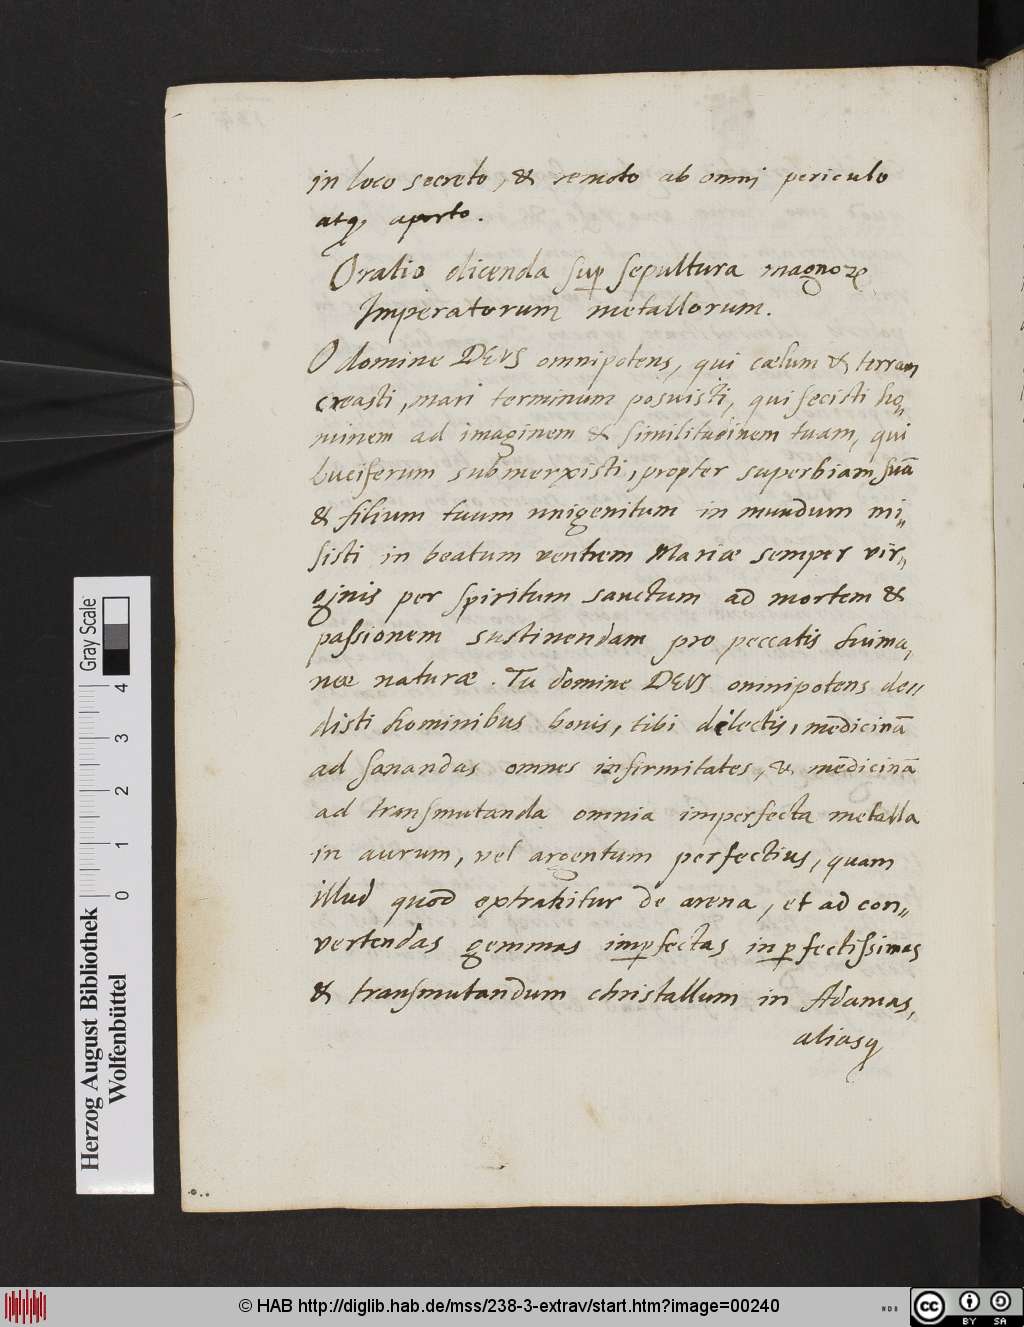 in loco secreto, & remoto ab omni periculo
atq; aperto.
Oratio dicenda sup sepultura magnoꝝ
Imperatorum metallorum.
O domine DEUS omnipotens, qui cælum & terram
creasti, mari terminum posuisti, qui fecisti ho„
minem ad imaginem & similitudinem tuam, qui
Luciferum submerxisti, propter superbiam suã
& filium tuum unigenitum in mundum mi„
sisti in beatum ventrem Mariæ semper vir„
ginis per spiritum sanctum ad mortem &
passionem sustinendam pro peccatis huma„
næ naturæ. Tu domine DEUS omnipotens de„
disti hominibus bonis, tibi dilectis, medicinã
ad sanandas omnes infirmitates, & medicinã
ad transmutanda omnia imperfecta metalla
in aurum, vel argentum perfectius, quam
illud quod extrahitur de arena, et ad con„
vertendas gemmas imꝑfectas in ꝑfectissimas
& transmutandum christallum in Adamas,
aliasq;
Herzog August Bibliothek
Wolfenbüttel
Gray Scale
0 1 2 3 4
© HAB http://diglib.hab.de/mss/238-3-extrav/start.htm?image=00240
cc BY SA